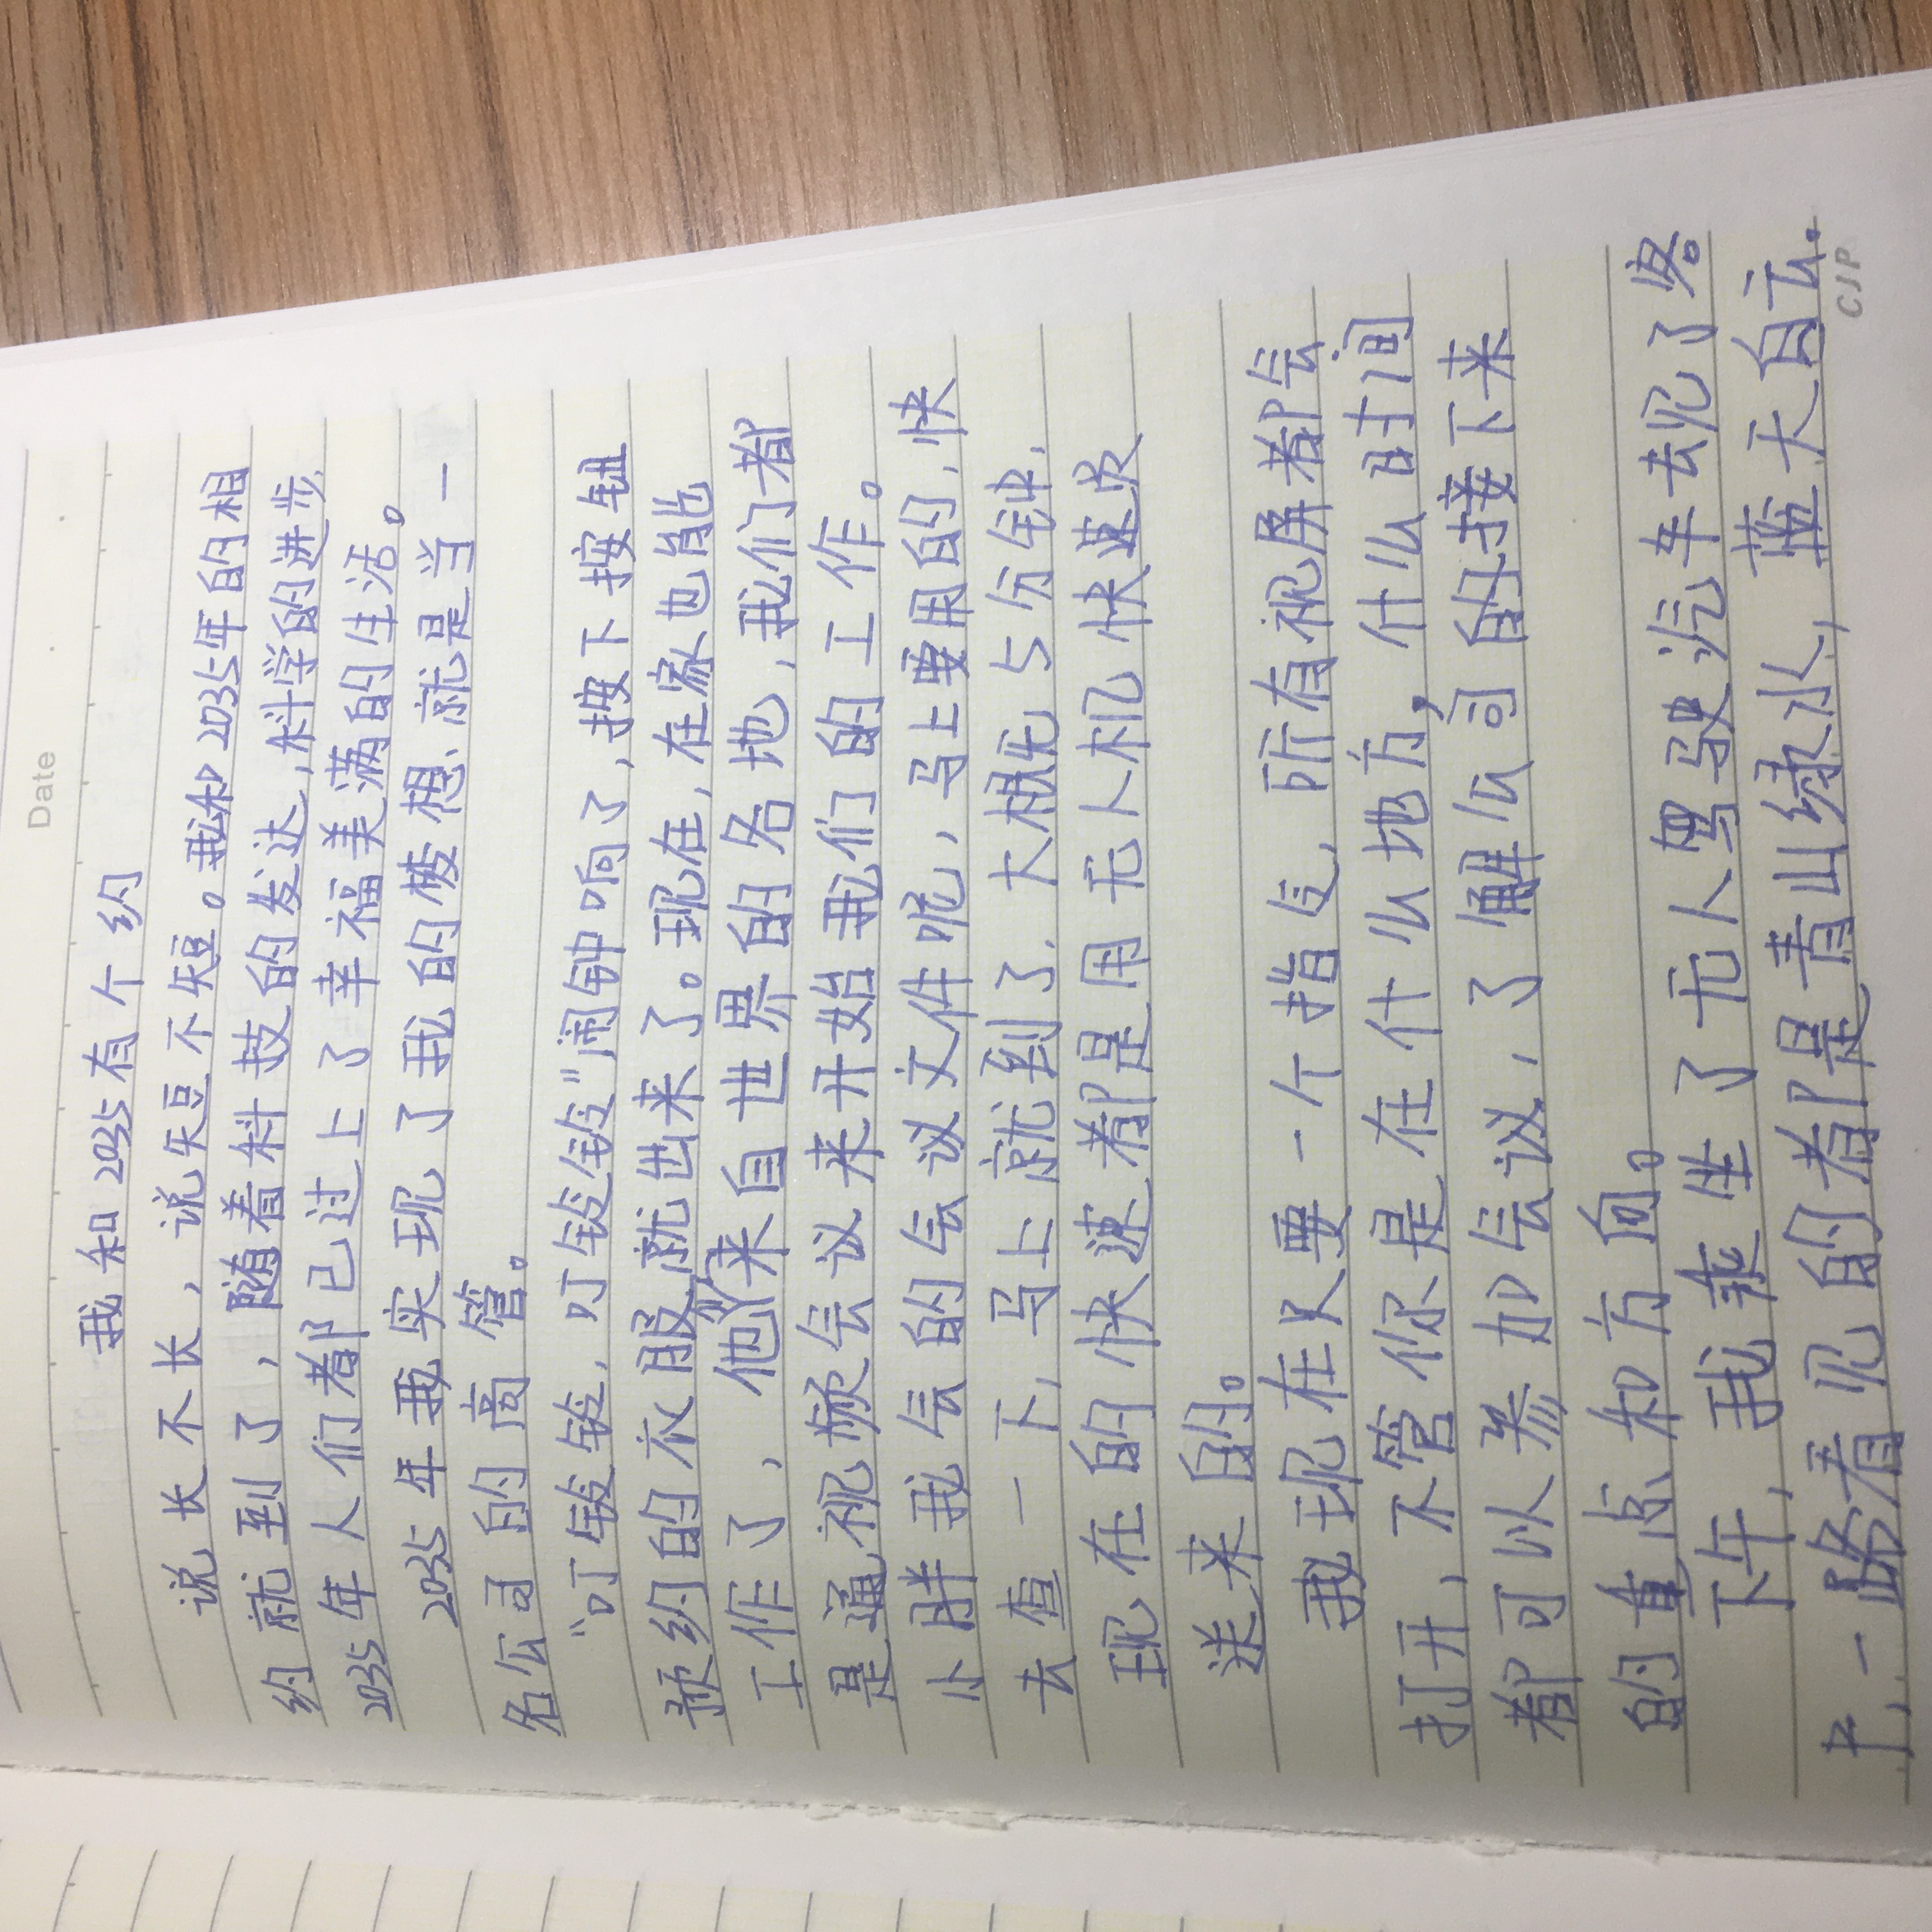 Date
我和2035有个约
说长不长，说短不短。我和2035年的相
约就到了，随着科技的发达，科学的进步，
2035年人们都已过上了幸福美满的生活。
2035年我实现了我的梦想，就是当一
名公司的高管。
“叮铃铃，叮铃铃”闹钟响了，按下按钮
预约的衣服就出来了。现在，在家也能
工作了，他们来自世界的名地，我们都
是通视频会议来开始我们的工作。
小胖我会的会议文件呢，马上要用的，快
去查一下，马上就到了，大概5分钟，
现在的快速都是用无人机快速
送来的。
我现在只要一个指令，所有视屏都会
打开，不管你是在什么地方，什么时间
都可以参加会议，了解公司的接下来
的重点和方向。
下午，我乘坐了无人驾驶汽车去呢了
一路看见的都是青山绿水，蓝天白云。
CJP